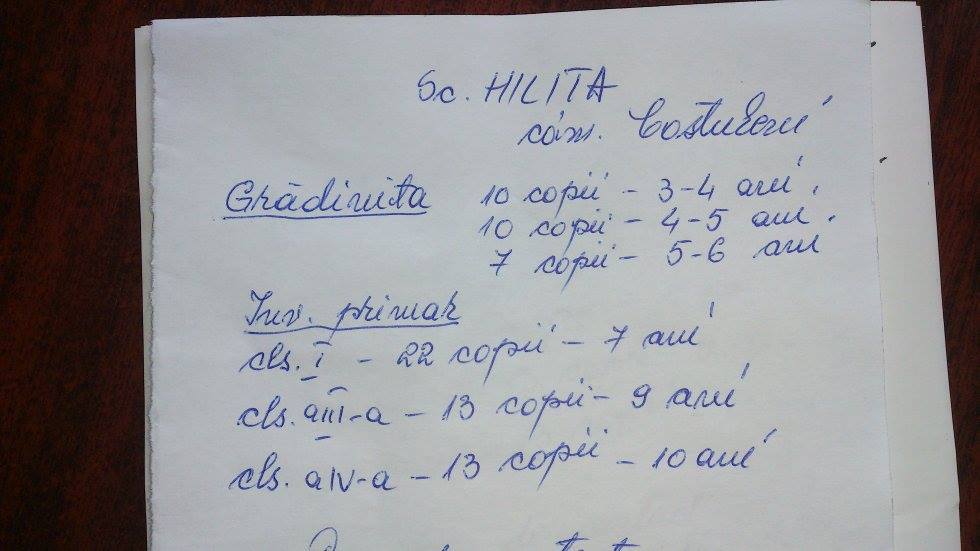 Sc. HILITA
com. Costuleni
Grădinita 10 copii - 3-4 ani.
10 copii - 4-5 ani.
7 copii - 5-6 ani
Inv. primar
cls. I - 22 copii - 7 ani
cls. a III-a - 13 copii - 9 ani
cls. a IV-a - 13 copii - 10 ani